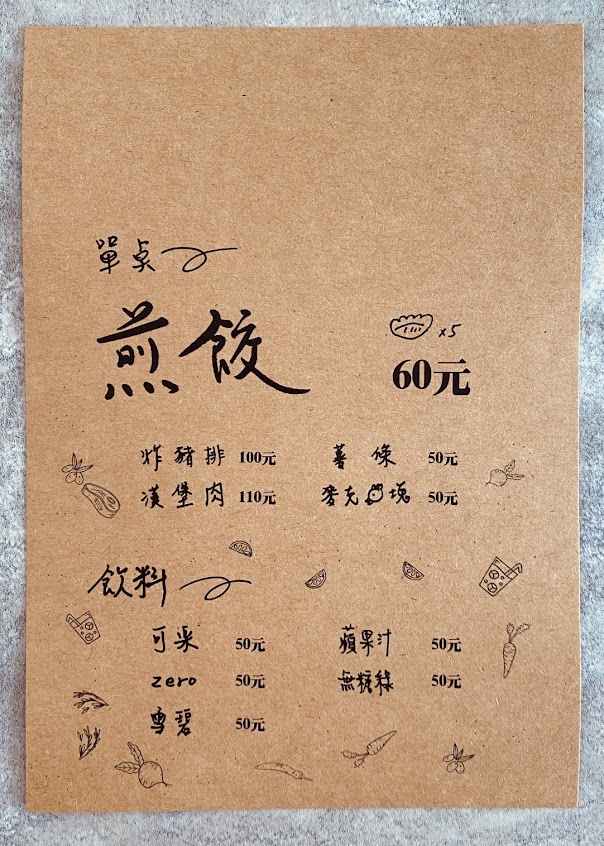 單桌
煎餃 x5 60元
炸豬排 100元 薯條 50元
漢堡肉 110元 麥克塊 50元
飲料
可樂 50元 蘋果汁 50元
zero 50元 無糖綠 50元
雪碧 50元